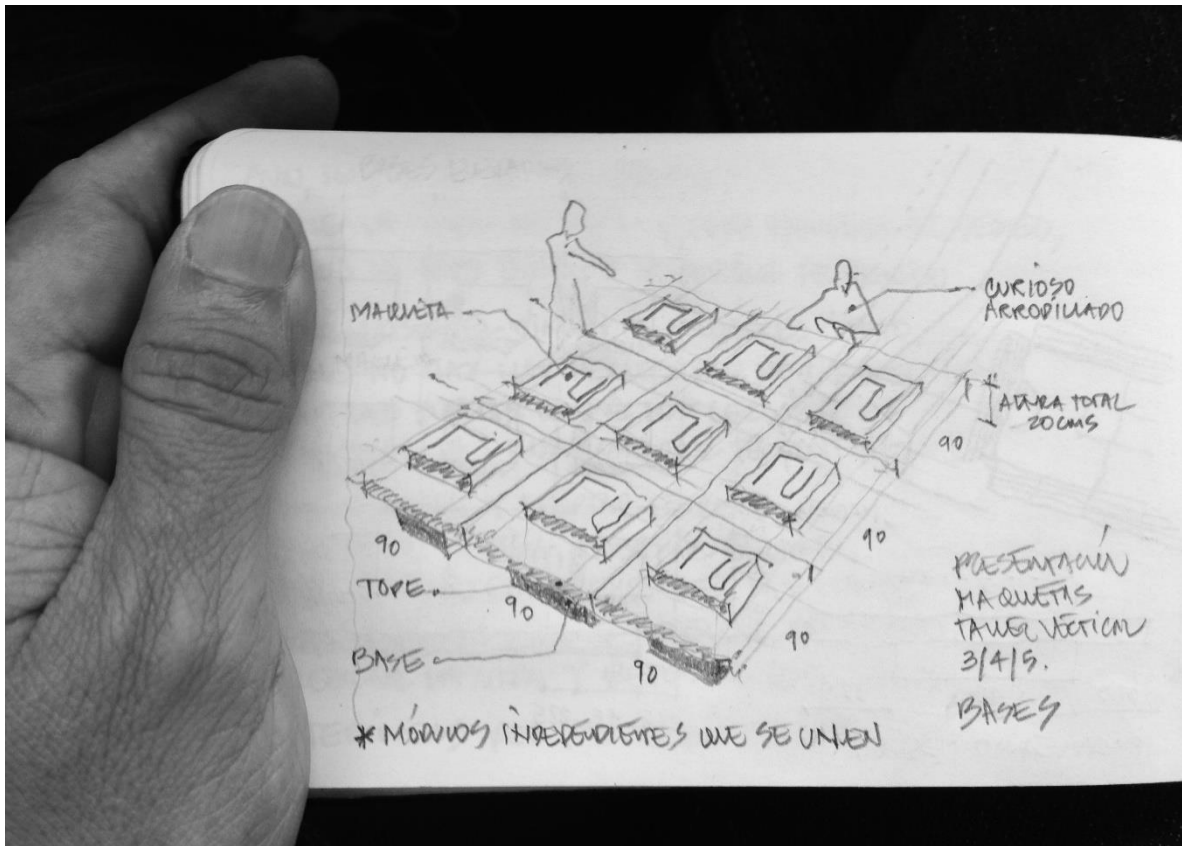 MAQUETA
CURIOSO
ARRODILLADO
ALTURA TOTAL
20 CMS
90
90
90
90
90
90
TOPE
BASE
PRESENTACIÓN
MAQUETAS
TALLER VERTICAL
3/4/5.
BASES
* MÓDULOS INDEPENDIENTES QUE SE UNEN